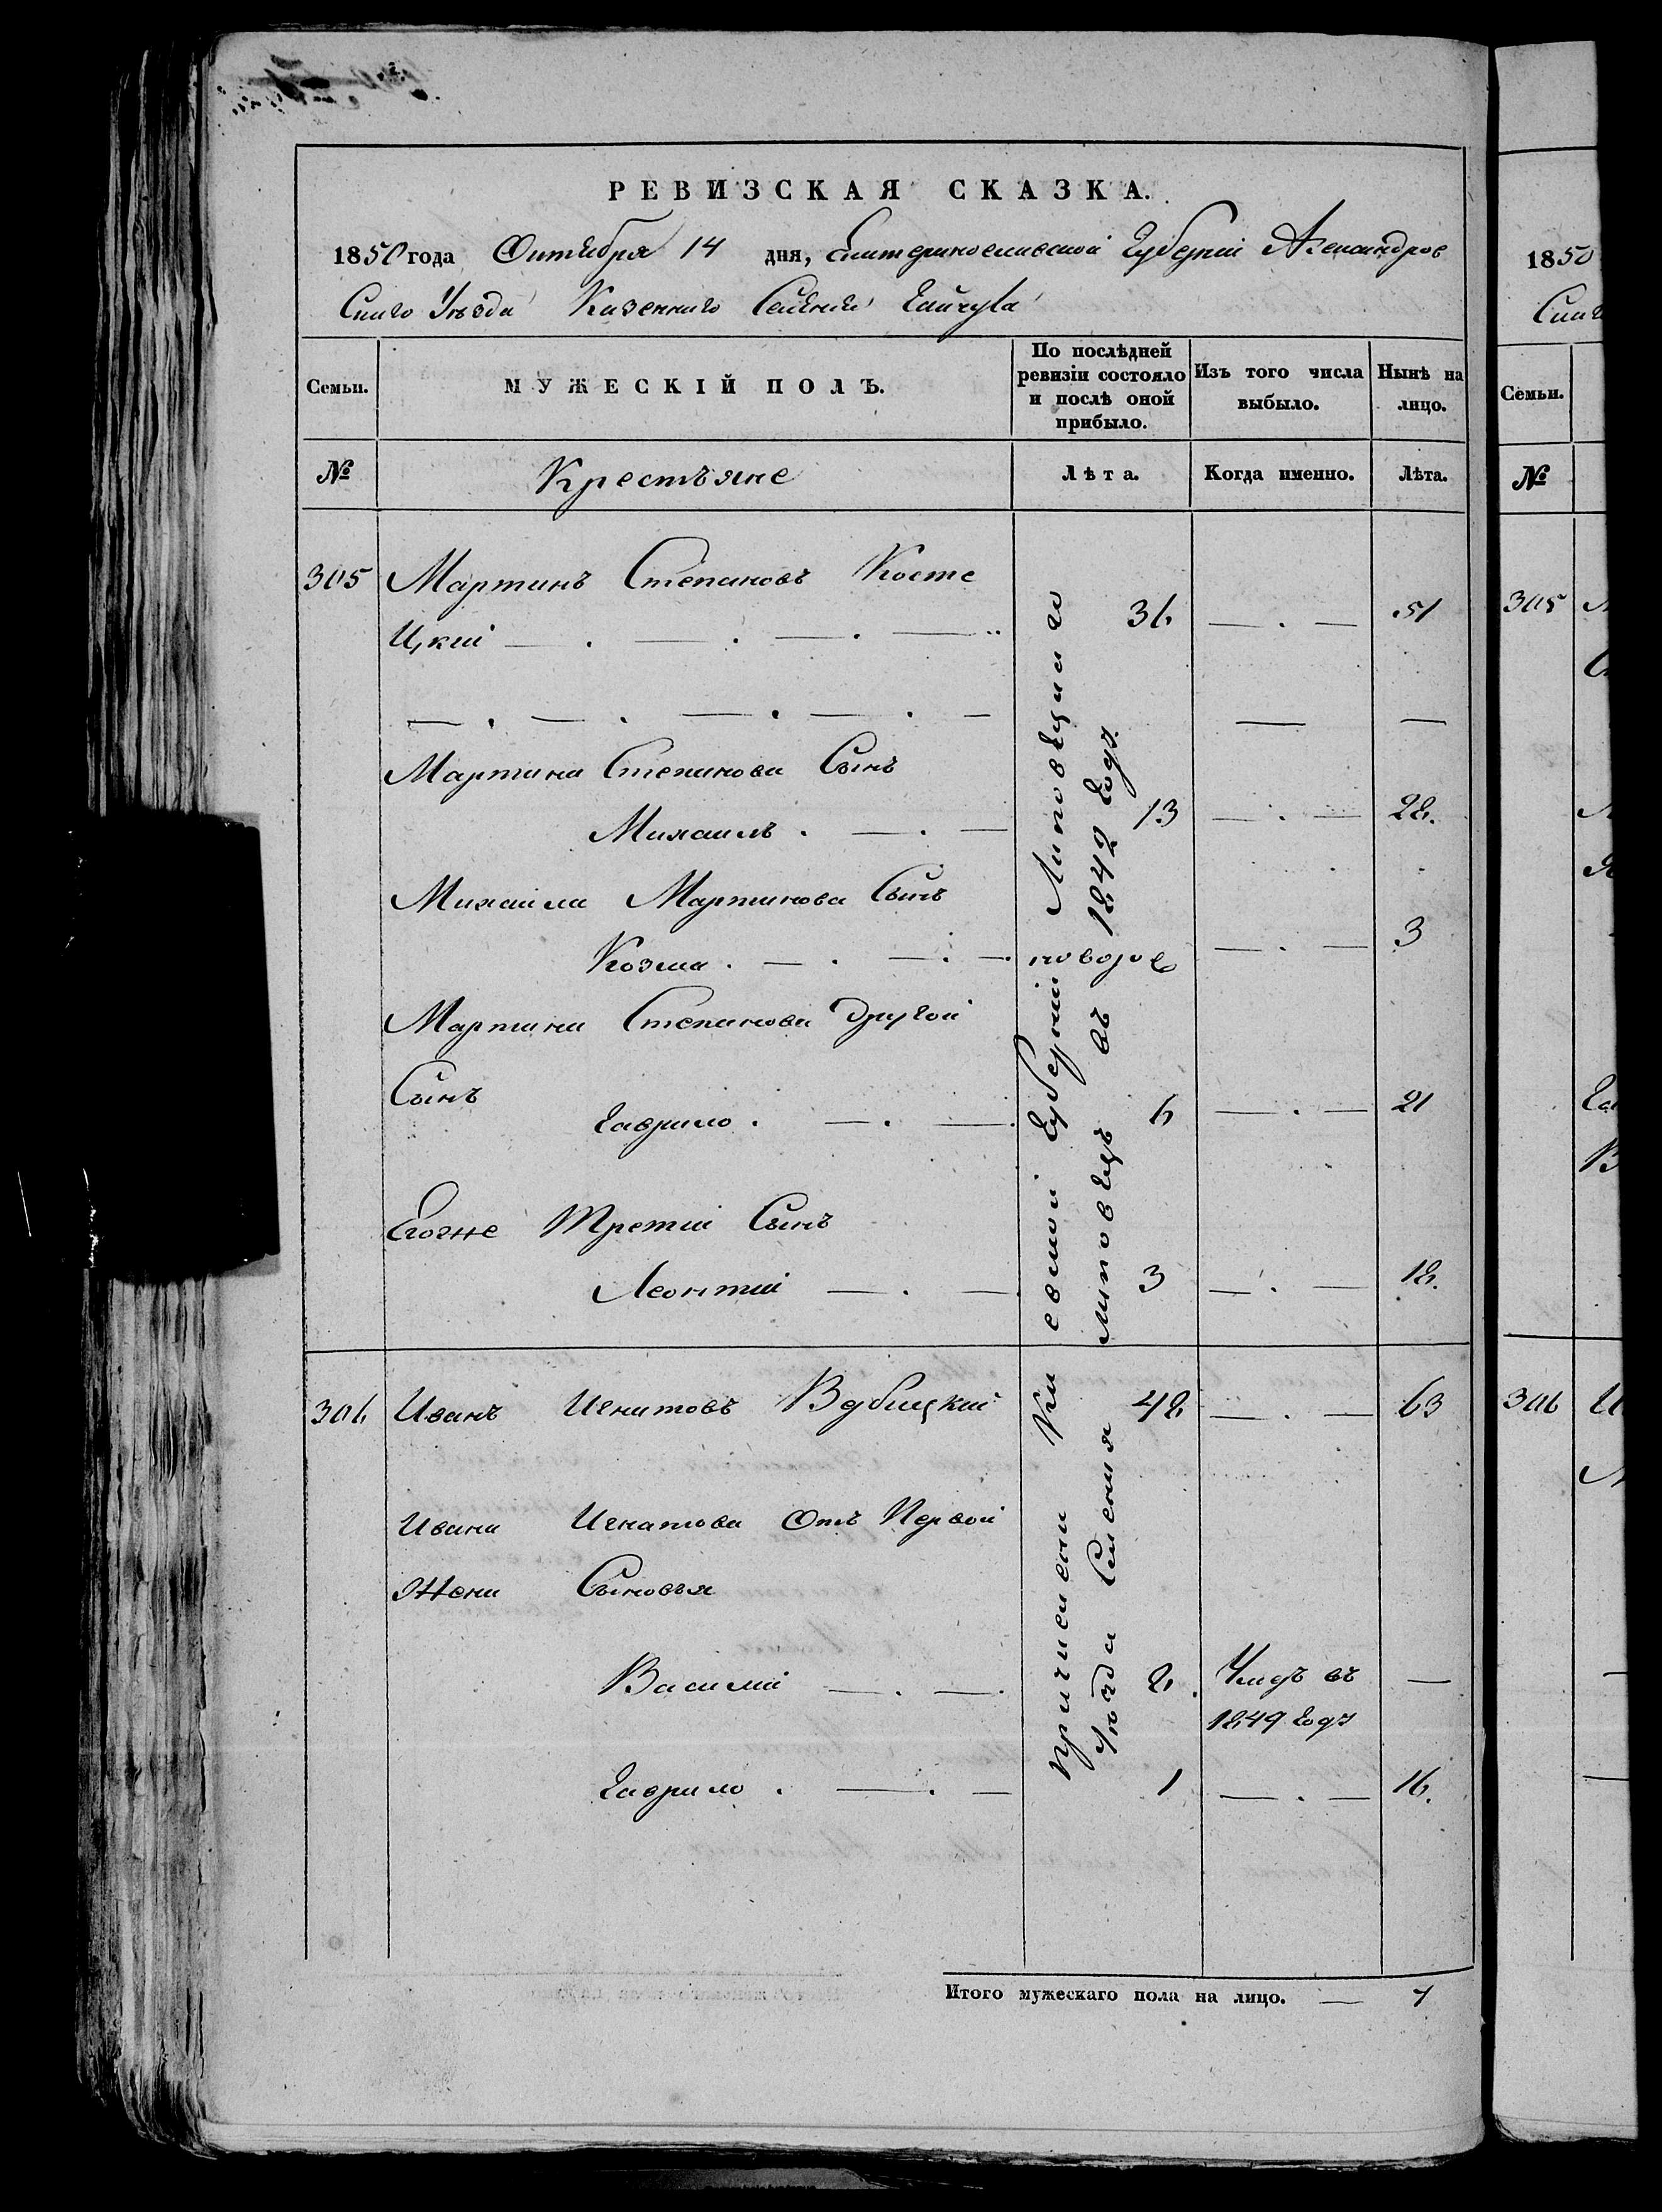 РЕВИЗСКАЯ СКАЗКА.
1850 года Октября 14 дня, Екатеринославской Губерніи Александров
Скаго Уѣзда Казеннаго Селенія Гайчула
Семьи.
МУЖЕСКІЙ ПОЛЪ.
По послѣдней ревизіи состояло и послѣ оной прибыло.
Изъ того числа выбыло.
Нынѣ на лицо.
№
Крестьяне
Лѣта.
Когда именно.
Лѣта.
305 Мартинъ Степановъ Косте
цкій 36 51
Мартина Степанова Сынъ
Михаилъ 13 28.
Михаила Мартинова Сынъ
Козма новорож 3
Мартина Степанова другой
Сынъ
Гаврило 6 21
Егоже Третій Сынъ
Леонтій 3 18.
306 Иванъ Игнатовъ 48 63
Ивана Игнатова Отъ Первой
Жени Сыновья
Василій 2. Умеръ въ —
1849 году
Гаврило 1 16.
Причислени Кіевской Губерніи Липовецкаго
Уѣзда Селенія Липовецъ въ 1842 году.
Итого мужескаго пола на лицо. — 7
1850
Скаго
Семьи.
№
305
306